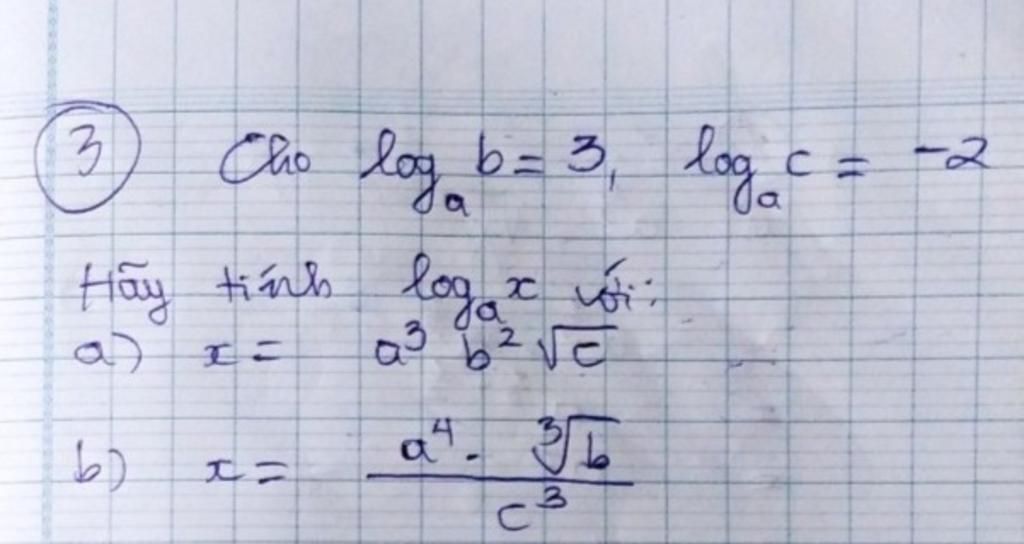 3 Cho logₐ b = 3, logₐ c = -2
Hãy tính logₐ x với:
a) x = a³ b² √c
b) x = a⁴ . ∛b / c³